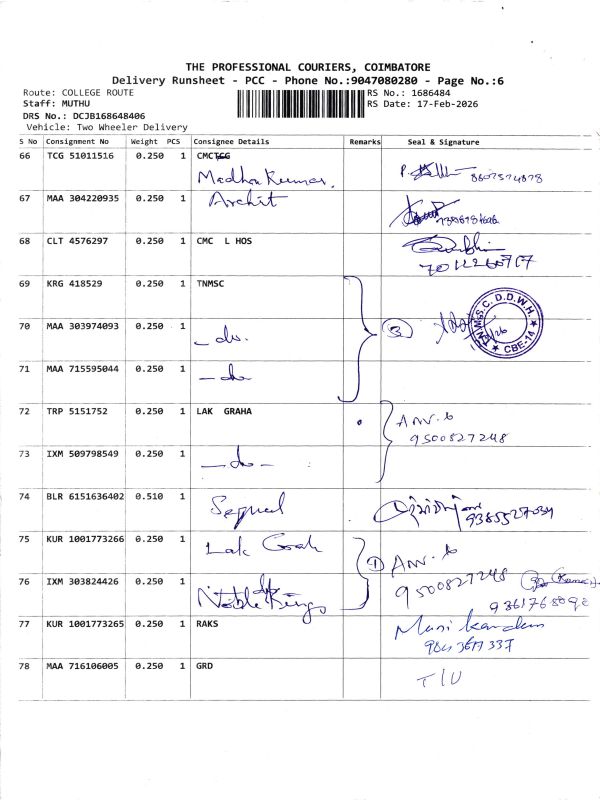 THE PROFESSIONAL COURIERS, COIMBATORE
Delivery Runsheet - PCC - Phone No.:9047080280 - Page No.:6
Route: COLLEGE ROUTE
RS No.: 1686484
Staff: MUTHU
RS Date: 17-Feb-2026
DRS No.: DCJB168648406
Vehicle: Two Wheeler Delivery
S No Consignment No Weight PCS Consignee Details Remarks Seal & Signature
66 TCG 51011516 0.250 1 CMCTCG
Madhan Kumar.
67 MAA 304220935 0.250 1 Archit
68 CLT 4576297 0.250 1 CMC L HOS
69 KRG 418529 0.250 1 TNMSC
70 MAA 303974093 0.250 1 - do.
3
T.N.M.S.C. D.D.W.H. CBE-14
71 MAA 715595044 0.250 1 - do
72 TRP 5151752 0.250 1 LAK GRAHA
9500827248
73 IXM 509798549 0.250 1 - do -
74 BLR 6151636402 0.510 1 Sequel
9385527034
75 KUR 1001773266 0.250 1 Lak Grah
9500827248
76 IXM 303824426 0.250 1 Noble Kings
77 KUR 1001773265 0.250 1 RAKS
Mani kandan
78 MAA 716106005 0.250 1 GRD
T/U